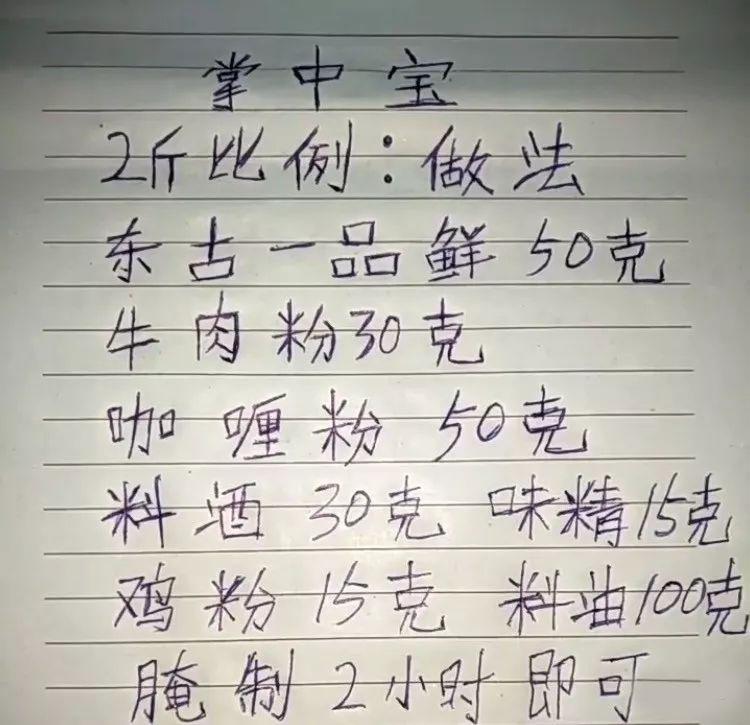 掌中宝
2斤比例:做法
东古一品鲜 50克
牛肉粉30克
咖喱粉 50克
料酒 30克 味精15克
鸡粉 15克 料油100克
腌制 2小时即可